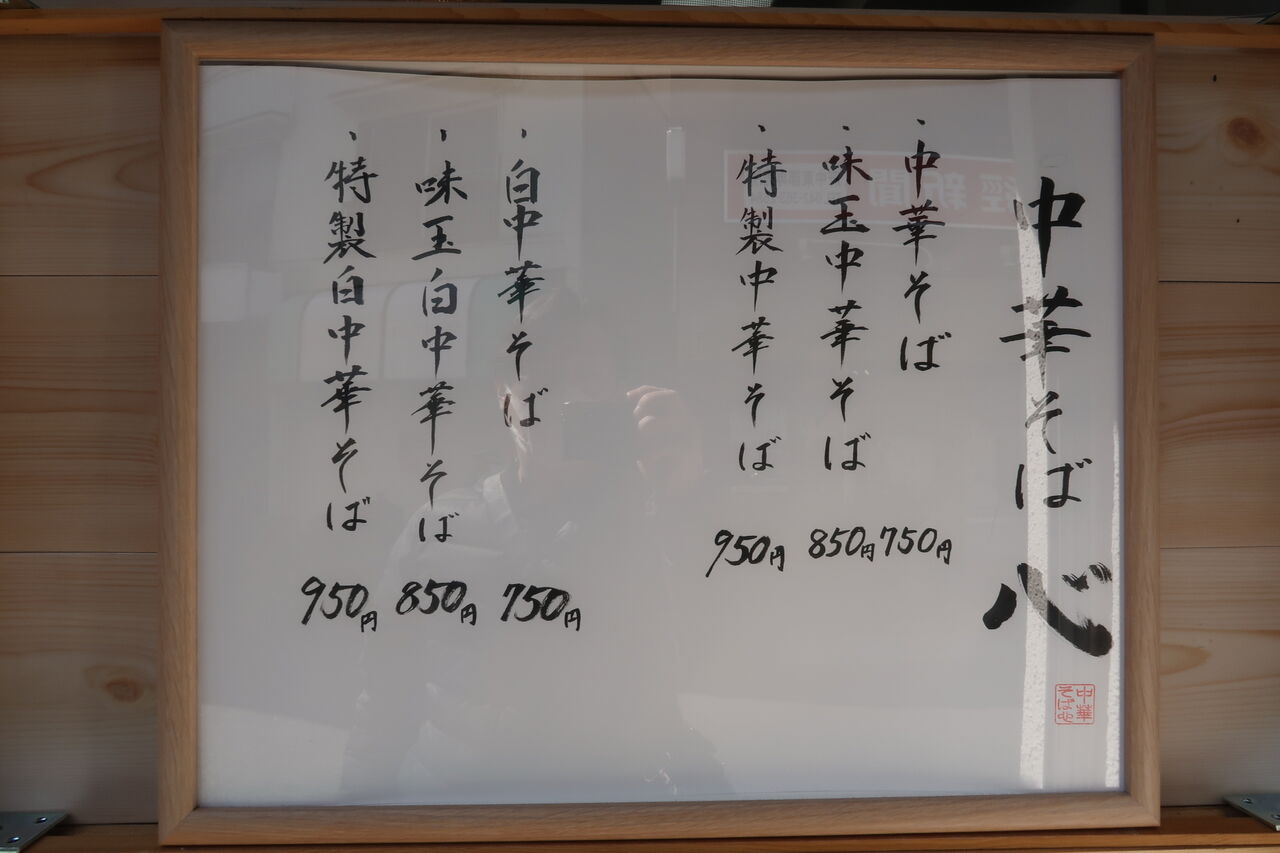 中華そば 心
中華
そば心
・中華そば 750円
・味玉中華そば 850円
・特製中華そば 950円
・白中華そば 750円
・味玉白中華そば 850円
・特製白中華そば 950円